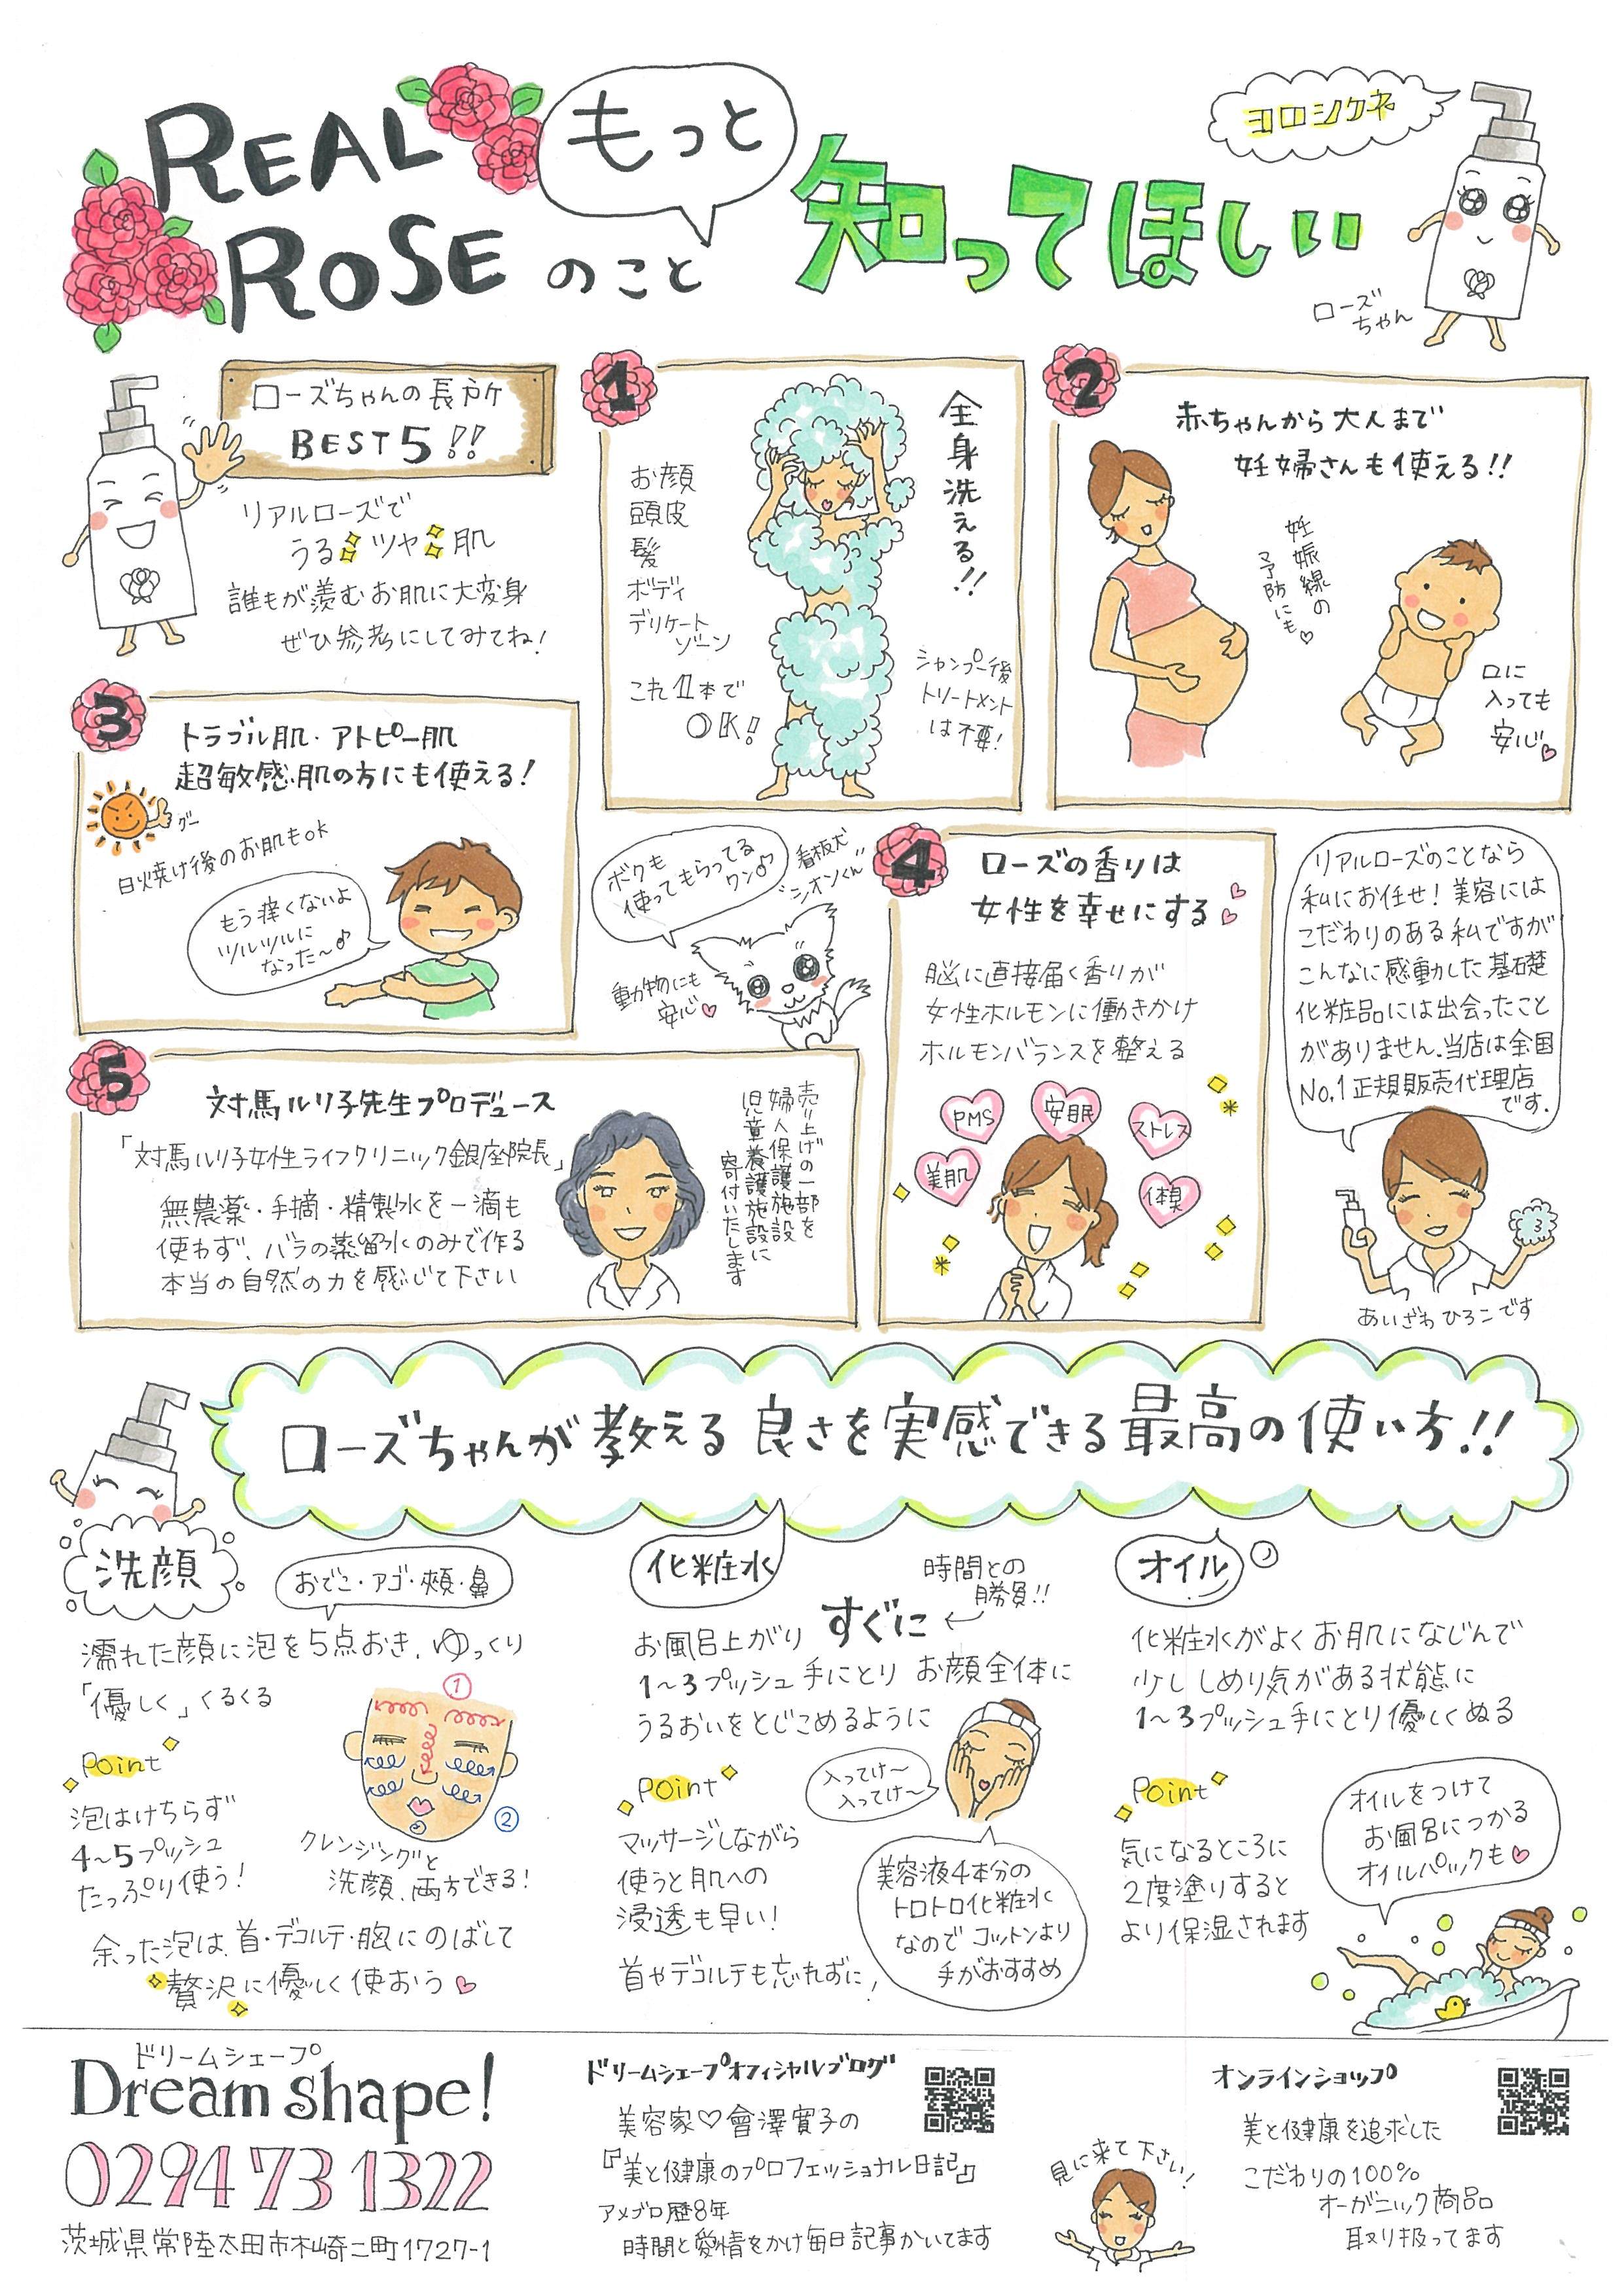 REAL
ROSE のこと
もっと
知ってほしい
ヨロシクネ
ローズ
ちゃん
ローズちゃんの長所
BEST5!!
リアルローズで
うるツヤ肌
誰もが羨むお肌に大変身
ぜひ参考にしてみてね!
1
全身洗える!!
お顔
頭皮
髪
ボディ
デリケート
ゾーン
これ1本で
OK!
シャンプー後
トリートメント
は不要!
2
赤ちゃんから大人まで
妊婦さんも使える!!
妊娠線の
予防にも♡
口に
入っても
安心♡
3
トラブル肌・アトピー肌
超敏感肌の方にも使える!
グー
日火焼け後のお肌もOK
もう痒くないよ
ツルツルに
なった〜♪
ボクも
使ってもらってる
ワン♪
看板犬
シオンくん"
動物にも
安心♡
4
ローズの香りは
女性を幸せにする♡♡
脳に直接届く香りが
女性ホルモンに働きかけ
ホルモンバランスを整える
PMS
安眠
ストレス
美肌
体臭
リアルローズのことなら
私にお任せ!美容には
こだわりのある私ですが
こんなに感動した基礎
化粧品には出会ったこと
がありません.当店は全国
No.1正規販売代理店
です.
あいざわひろこです
5
対馬ルリ子先生プロデュース
「対馬ルリ子女性ライフクリニック銀座院長」
無農薬・手摘・精製水を一滴も
使わず、バラの蒸留水のみで作る
本当の自然の力を感じて下さい
売り上げの一部を
婦人保護施設
児童養護施設に
寄付いたします
ローズちゃんが教える良さを実感できる最高の使い方!!
洗顔
おでこ・アゴ・頬・鼻
濡れた顔に泡を5点おき、ゆっくり
「優しく」くるくる
①
②
Point
泡はけちらず
4〜5プッシュ
たっぷり使う!
クレンジングと
洗顔、両方できる!
余った泡は、首・デコルテ・胸にのばして
贅沢に優しく使おう♡
化粧水
時間との
勝負!!
お風呂上がりすぐに
1〜3プッシュ手にとりお顔全体に
うるおいをとじこめるように
Point
入ってけ〜
入ってけ〜
マッサージしながら
使うと肌への
浸透も早い!
首やデコルテも忘れずに!
美容液4本分の
トロトロ化粧水
なのでコットンより
手がおすすめ
オイル
化粧水がよくお肌になじんで
少ししめり気がある状態に
1〜3プッシュ手にとり優しくぬる
Point
気になるところに
2度塗りすると
より保湿されます
オイルをつけて
お風呂につかる
オイルパックも♡
ドリームシェープ
Dream shape!
0294 73 1322
茨城県常陸太田市木崎二町1727-1
ドリームシェープオフィシャルブログ
美容家♡會澤寳子の
『美と健康のプロフェッショナル日記』
アメブロ歴8年
時間と愛情をかけ毎日記事かいてます
見に来て下さい!
オンラインショップ
美と健康を追求した
こだわりの100%
オーガニック商品
取り扱ってます